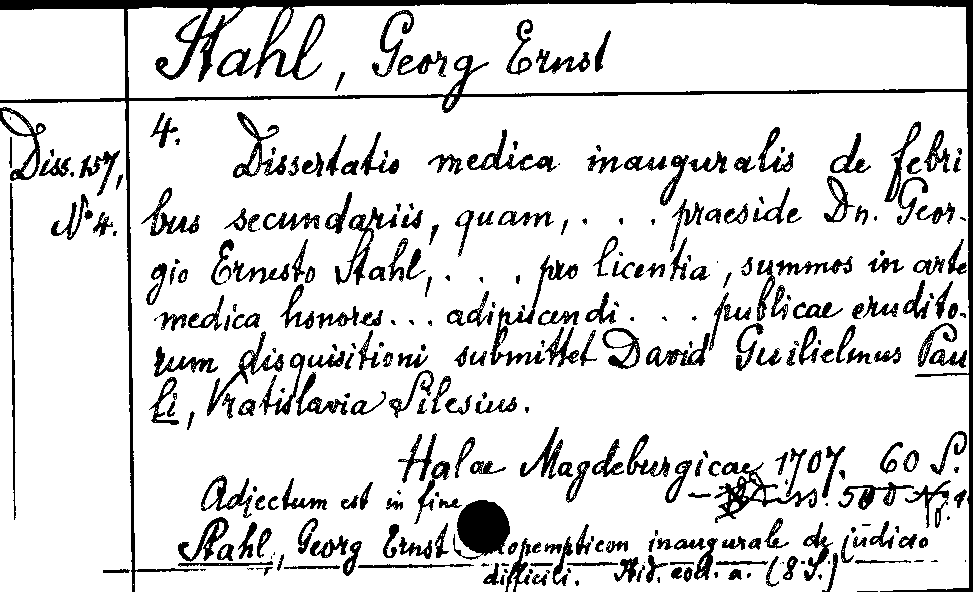 Stahl, Georg Ernst
Diss. 157,
No 4.
4.
Dissertatio medica inauguralis de febri
bus secundariis, quam, . . . praeside Dn. Geor-
gio Ernesto Stahl, . . . pro licentia, summos in arte
medica honores... adipiscendi . . . publicae erudito-
rum disquisitioni submittet David Guilielmus Pau
li, Vratislavia Silesius.
Halae Magdeburgicae 1707. 60 S.
Adjectum est in fine
Diss. 500
Stahl, Georg Ernst
opempticon inaugurale de judicio
difficili. Ibid. eod. a. (8 S.)